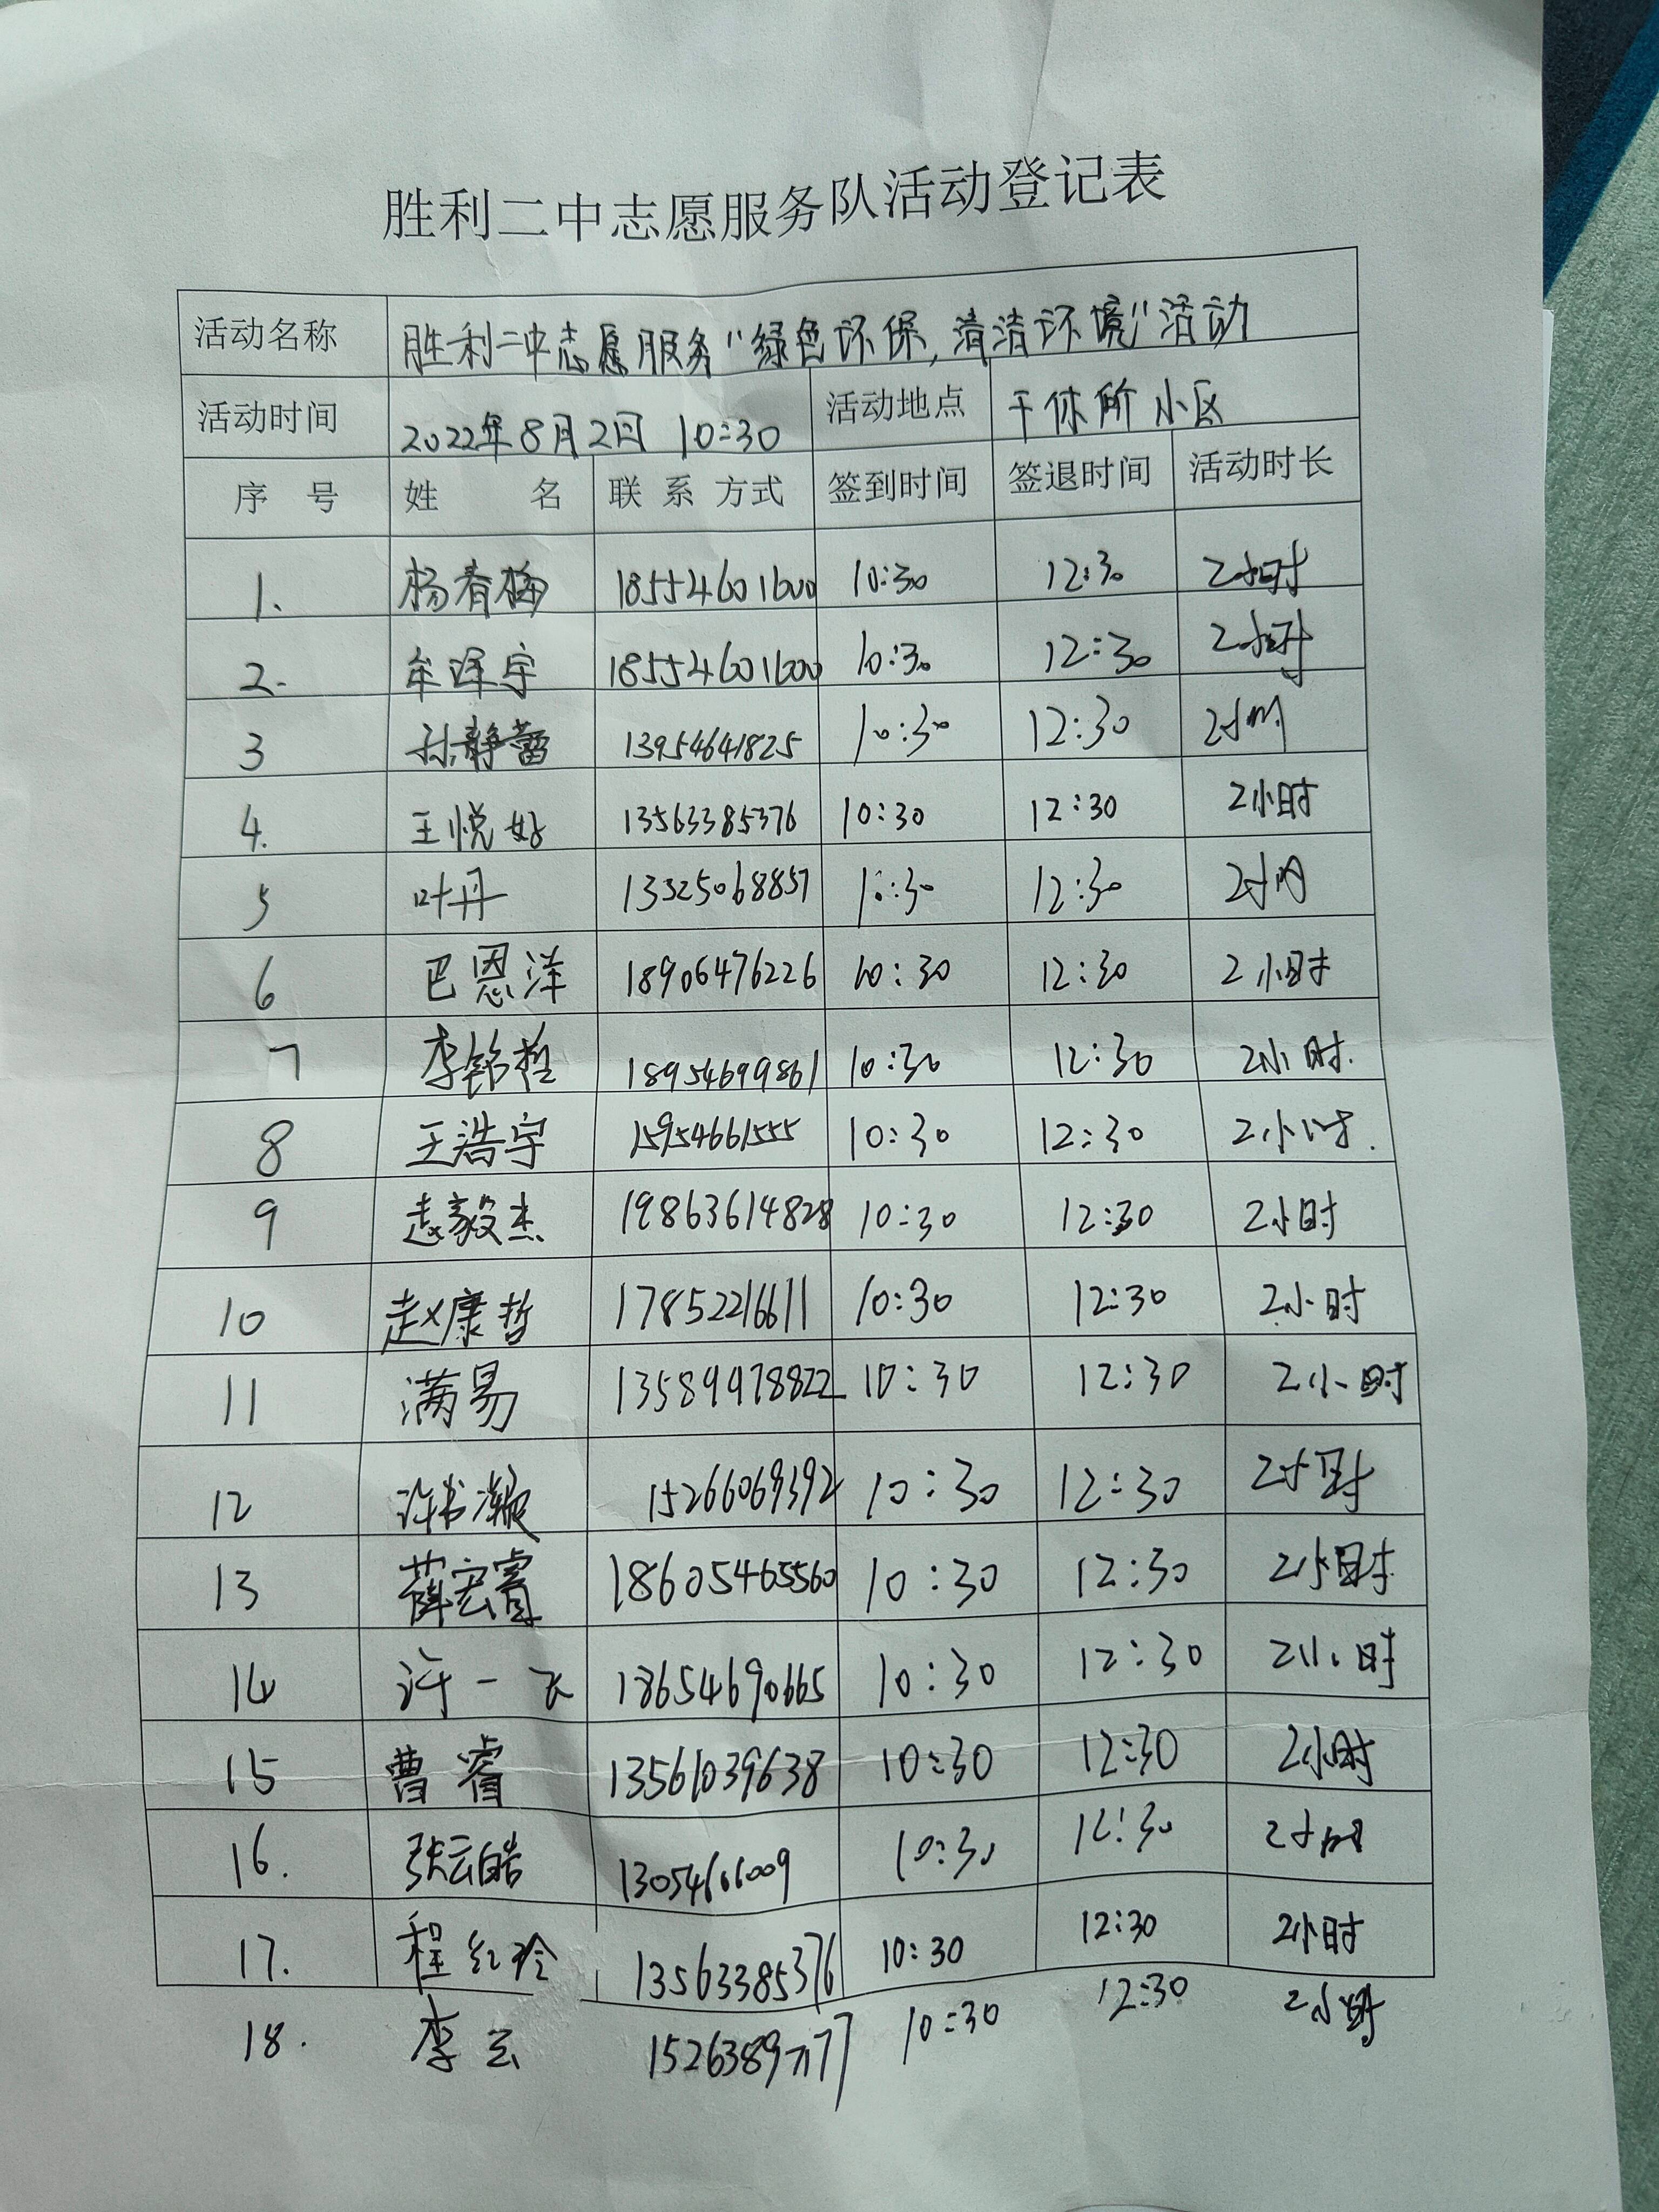 胜利二中志愿服务队活动登记表
活动名称 胜利二中志愿服务“绿色环保,清洁环境”活动
活动时间 2022年8月2日 10:30 活动地点 干休所小区
序 号 姓 名 联 系 方式 签到时间 签退时间 活动时长
1. 杨春梅 18554601600 10:30 12:30 2小时
2. 牟泽宇 18554601600 10:30 12:30 2小时
3 孙静蕾 13954641825 10:30 12:30 2小时
4. 王悦妃 13563385376 10:30 12:30 2小时
5 叶丹 13325068857 10:30 12:30 2小时
6 巴恩泽 18906476226 10:30 12:30 2小时
7 李铭哲 18954699861 10:30 12:30 2小时.
8 王浩宇 15954661555 10:30 12:30 2小时.
9 赵毅杰 19863614828 10:30 12:30 2小时
10 赵康哲 17852216611 10:30 12:30 2小时
11 满易 13589978822 10:30 12:30 2小时
12 许书 15266069392 10:30 12:30 2小时
13 薛宏睿 18605465560 10:30 12:30 2小时
14 许一飞 18654690665 10:30 12:30 2小时
15 曹睿 13561039638 10:30 12:30 2小时
16. 张云皓 10:30 12:30 2小时
17. 程红玲 13563385376 10:30 12:30 2小时
18. 李云 10:30 12:30 2小时